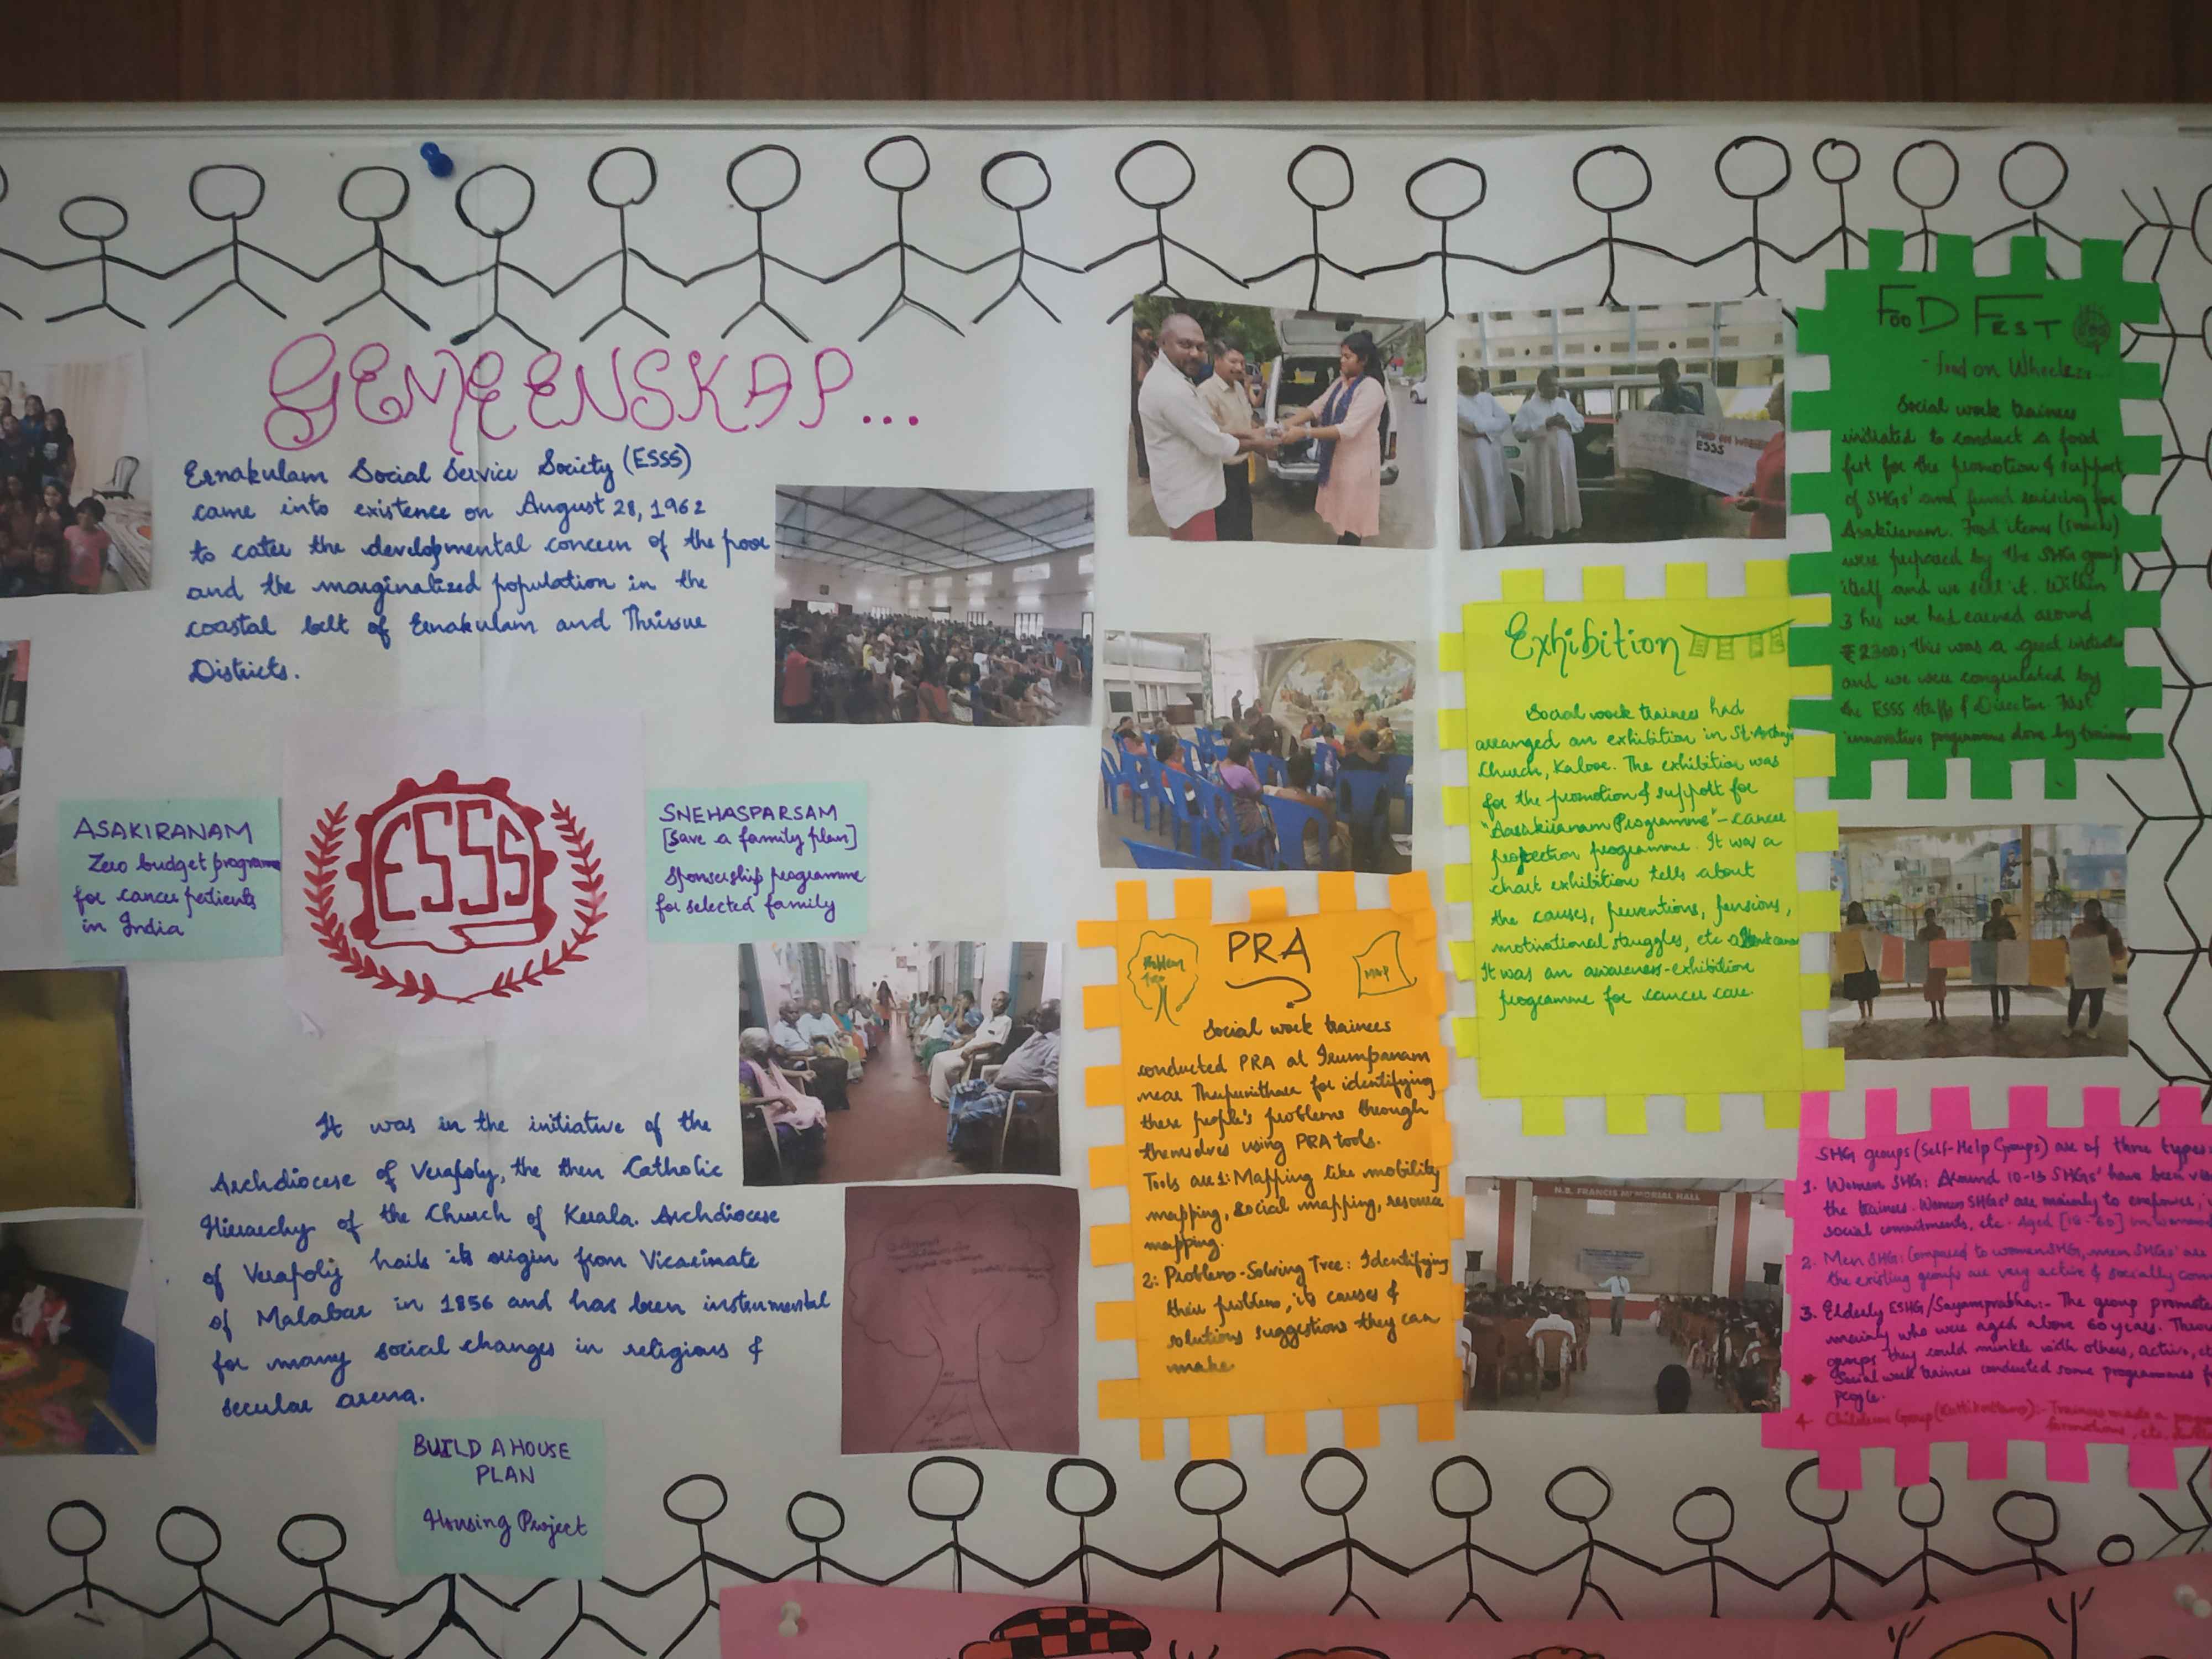 GEMEENSKAP...
Ernakulam Social Service Society (ESSS)
came into existence on August 28, 1962
to cater the developmental concern of the poor
and the marginalized population in the
coastal belt of Ernakulam and Thrissur
Districts.
ASAKIRANAM
Zero budget programme
for cancer patients
in India
ESSS
SNEHASPARSAM
[save a family plan]
Sponsership programme
for selected family
It was in the initiative of the
Archdiocese of Verapoly, the then Catholic
Hierarchy of the Church of Kerala. Archdiocese
of Verapoly hails its origin from Vicarinate
of Malabar in 1856 and has been instrumental
for many social changes in religious &
secular arena.
BUILD A HOUSE
PLAN
Housing Project
ESSS
PRA
Problem
Tree
MAP
Social work trainees
conducted PRA at Irumpanam
near Thripunithara for identifying
there people's problems through
themselves using PRA tools.
Tools are 1: Mapping like mobility
mapping, social mapping, resource
mapping.
2: Problem-Solving Tree: Identifying
their problem, its causes &
solutions suggestions they can
make
Exhibition
Social work trainees had
arranged an exhibition in St. Antony's
Church, Kaloor. The exhibition was
for the promotion & support for
"Aasakiranam Programme" - cancer
protection programme. It was a
chart exhibition tells about
the causes, preventions, pensions,
motivational struggles, etc
It was an awareness-exhibition
programme for cancer care.
N.B. FRANCIS MEMORIAL HALL
FooD FEST
- food on Wheels...
Social work trainees
initiated to conduct a food
fest for the promotion & support
of SHGs' and fund raising for
Asakiranam. Food items (snacks)
were prepared by the SHG group
itself and we sell it. Within
3 hrs we had earned around
₹ 2300; this was a good initiative
and we were congulated by
the ESSS staffs & Director. First
innovative programme done by trainees
SHG groups (Self-Help Groups) are of three types:
1. Women SHG: Around 10-13 SHGs' have been
the trainees. Women SHGs' are mainly to empower,
social commitments, etc. Aged [18-60] in women
2. Men SHG: Compared to women SHG, men SHGs' are
the existing groups are very active & socially
3. Elderly ESHG/Sayamprabha:- The group promote
mainly who were aged above 60 years.
groups they could minkle with others, active,
Social work trainees conducted some programmes
people.
4 Childrens Group